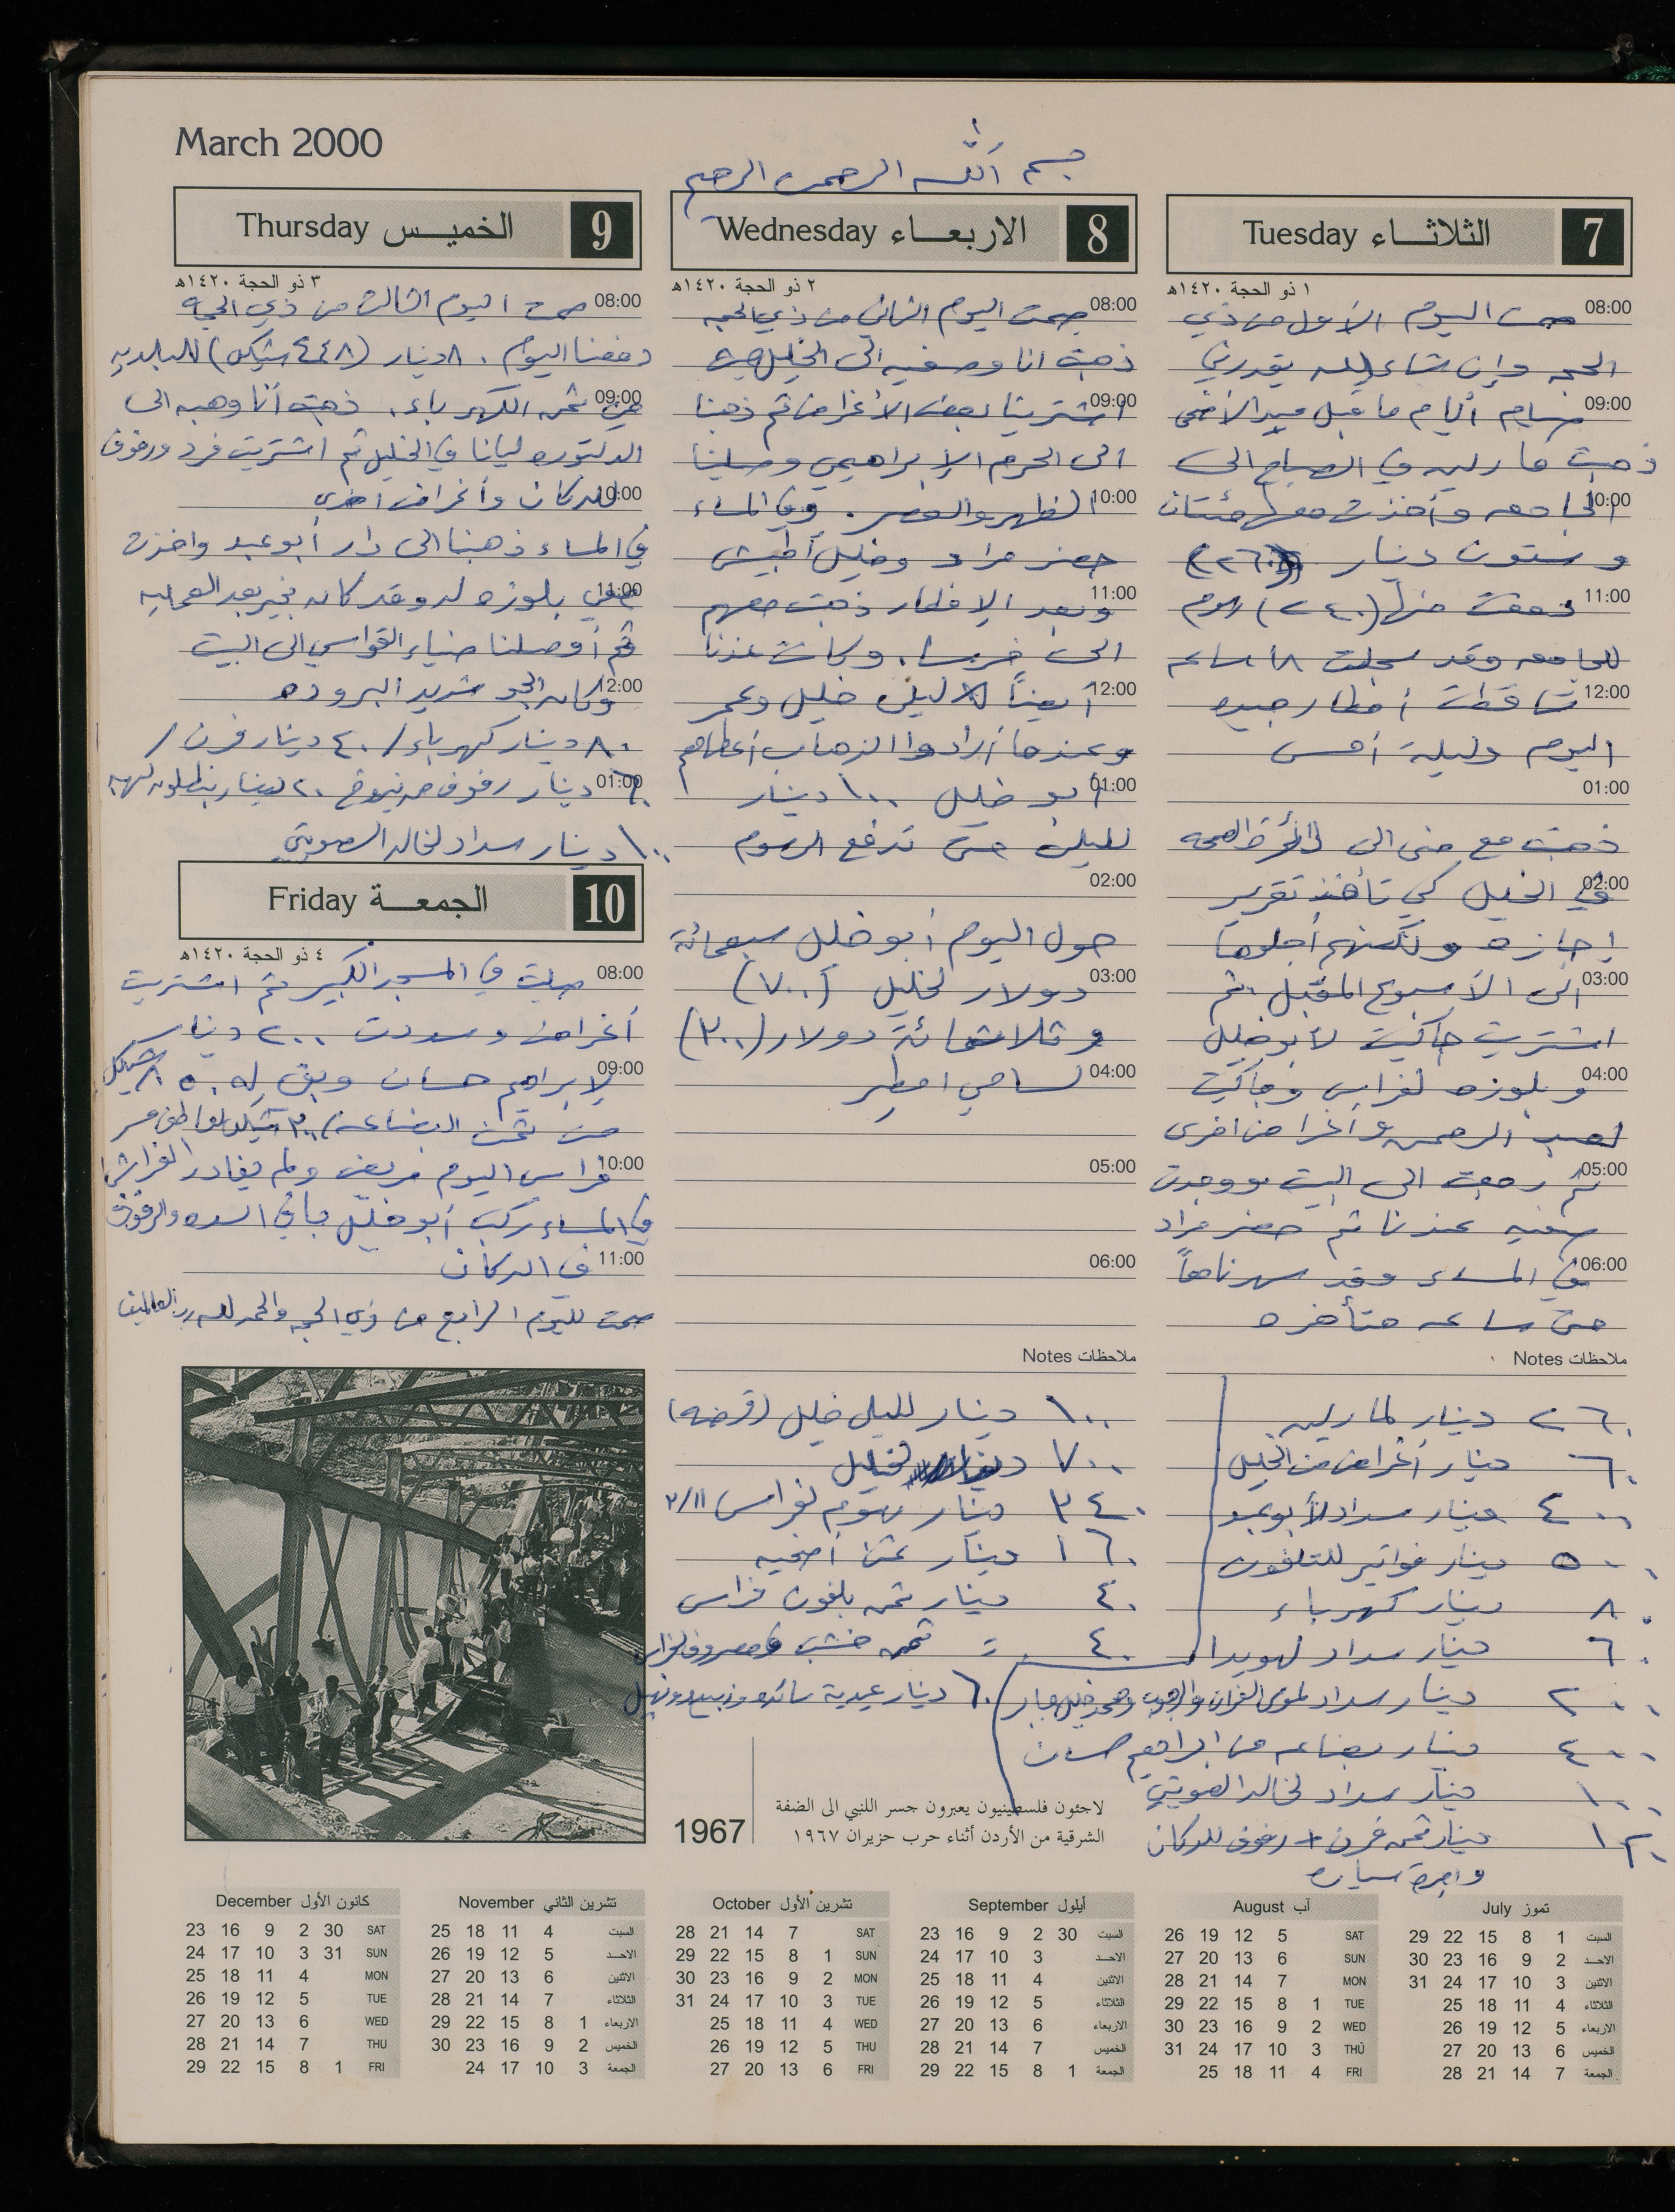 March 2000
بسم الله الرحمن الرحيم
7 الثلاثاء Tuesday
١ ذو الحجة ١٤٢٠هـ
08:00
صمت اليوم الأول من ذي
الحجه وإن شاء الله يقدرني
09:00
صيام أيام ما قبل عيد الأضحى
ذهبت مارلين في الصباح الى
10:00
الجامعه وأخذت معها مئتان
و ستون دينار (٢٦٠)
11:00
دفعت منها (٢٤٠) رسوم
للجامعه وقد سجلت ١٨ ساعه
12:00
تساقطت أمطار جيده
اليوم وليلة أمس
01:00
ذهبت مع منى الى دائرة الصحه
02:00
في الخليل كي تأخذ تقرير
إجازه ولكنهم أجلوها
03:00
الى الأسبوع المقبل ثم
اشتريت جاكيت لأبو خليل
04:00
و بلوزه لفراس وجاكيت
لعبد الرحمن وأغراض اخرى
05:00
ثم رجعت الى البيت ووجدت
صفيه عندنا ثم حضر مراد
06:00
في المساء وقد سهرنا معاً
حتى ساعه متأخره
ملاحظات Notes
٢٦٠ دينار لمارلين
٦٠ دينار أغراض من الخليل
٤٠٠ دينار سداد لأبو
٥٠٠ دينار فواتير للتلفون
٨٠ دينار كهرباء
٦٠ دينار سداد لهويدا
٢٠٠ دينار سداد
٤٠٠ دينار بضاعه من ابراهيم حسان
١٠٠ دينار سداد لخالد الصويتي
١٢٠ دينار ثمن فرن + رفوف للدكان
واجرة سياره
8 الاربعاء Wednesday
٢ ذو الحجة ١٤٢٠هـ
08:00
صمت اليوم الثاني من ذي الحجه
ذهبت انا وصفيه الى الخليل
09:00
اشترينا بعض الأغراض ثم ذهبنا
الى الحرم الإبراهيمي وصلينا
10:00
الظهر والعصر. وفي المساء
حضر مراد وخليل اطبيش
11:00
وبعد الإفطار ذهبت معهم
الى خرسا، وكانت عندنا
12:00
أيضاً ليلى خليل وعمر
وعندما أرادوا الذهاب أعطاهم
01:00
أبو خليل ١٠٠ دينار
لليلى حتى تدفع الرسوم
02:00
حول اليوم أبو خليل سبعمائة
03:00
دولار لخليل (٧٠٠)
و ثلاثمائة دولار (٣٠٠)
04:00
لسامي امطير
05:00
06:00
ملاحظات Notes
١٠٠ دينار لليلى خليل (قرضه)
٧٠٠ لخليل
٣٤٠ دينار رسوم لفراس ٣/١١
١٦٠ دينار ثمن أضحيه
٤٠ دينار ثمن بلفون فراس
٤٠ = ثمن خشب ومصروف لفراس
٦٠ دينار عيدية
9 الخميس Thursday
٣ ذو الحجة ١٤٢٠هـ
08:00
صمت اليوم الثالث من ذي الحجه
دفعنا اليوم ٨٠ دينار (٤٤٨ شيكل) للبلديه
09:00
من ثمن الكهرباء، ذهبت أنا وهبه الى
الدكتوره ليانا في الخليل ثم اشتريت فرن ورفوف
10:00
للدكان وأغراض اخرى
في المساء ذهبنا الى دار أبو عبد واخذت
11:00
معي بلوزه له وقد كان بخير بعد العمليه
ثم أوصلنا ضياء القواسمي الى البيت
12:00
وكان الجو شديد البروده
٨٠ دينار كهرباء / ٤٠ دينار فرن /
01:00
٦٠ دينار رفوف ٢٠ دينار
١٠٠ دينار سداد لخالد الصويتي
10 الجمعة Friday
٤ ذو الحجة ١٤٢٠هـ
08:00
صليت في المسجد الكبير ثم اشتريت
أغراض وسددت ٢٠٠ دينار
09:00
لإبراهيم حسان وبقي له ٨٥٠ شيكل
من ثمن البضاعه /
10:00
فراس اليوم مريض ولم يغادر الفراش
في المساء ركب أبو خليل باقي السده والرفوف
11:00
في الدكان
صمت لليوم الرابع من ذي الحجه والحمد لله رب العالمين
1967
لاجئون فلسطينيون يعبرون جسر اللنبي الى الضفة
الشرقية من الأردن أثناء حرب حزيران ١٩٦٧
تموز July
29 22 15 8 1 السبت
30 23 16 9 2 الاحد
31 24 17 10 3 الاثنين
25 18 11 4 الثلاثاء
26 19 12 5 الاربعاء
27 20 13 6 الخميس
28 21 14 7 الجمعة
آب August
26 19 12 5 SAT
27 20 13 6 SUN
28 21 14 7 MON
29 22 15 8 1 TUE
30 23 16 9 2 WED
31 24 17 10 3 THU
25 18 11 4 FRI
أيلول September
23 16 9 2 30 السبت
24 17 10 3 الاحد
25 18 11 4 الاثنين
26 19 12 5 الثلاثاء
27 20 13 6 الاربعاء
28 21 14 7 الخميس
29 22 15 8 1 الجمعة
تشرين الأول October
28 21 14 7 SAT
29 22 15 8 1 SUN
30 23 16 9 2 MON
31 24 17 10 3 TUE
25 18 11 4 WED
26 19 12 5 THU
27 20 13 6 FRI
تشرين الثاني November
25 18 11 4 السبت
26 19 12 5 الاحد
27 20 13 6 الاثنين
28 21 14 7 الثلاثاء
29 22 15 8 1 الاربعاء
30 23 16 9 2 الخميس
24 17 10 3 الجمعة
كانون الأول December
23 16 9 2 30 SAT
24 17 10 3 31 SUN
25 18 11 4 MON
26 19 12 5 TUE
27 20 13 6 WED
28 21 14 7 THU
29 22 15 8 1 FRI